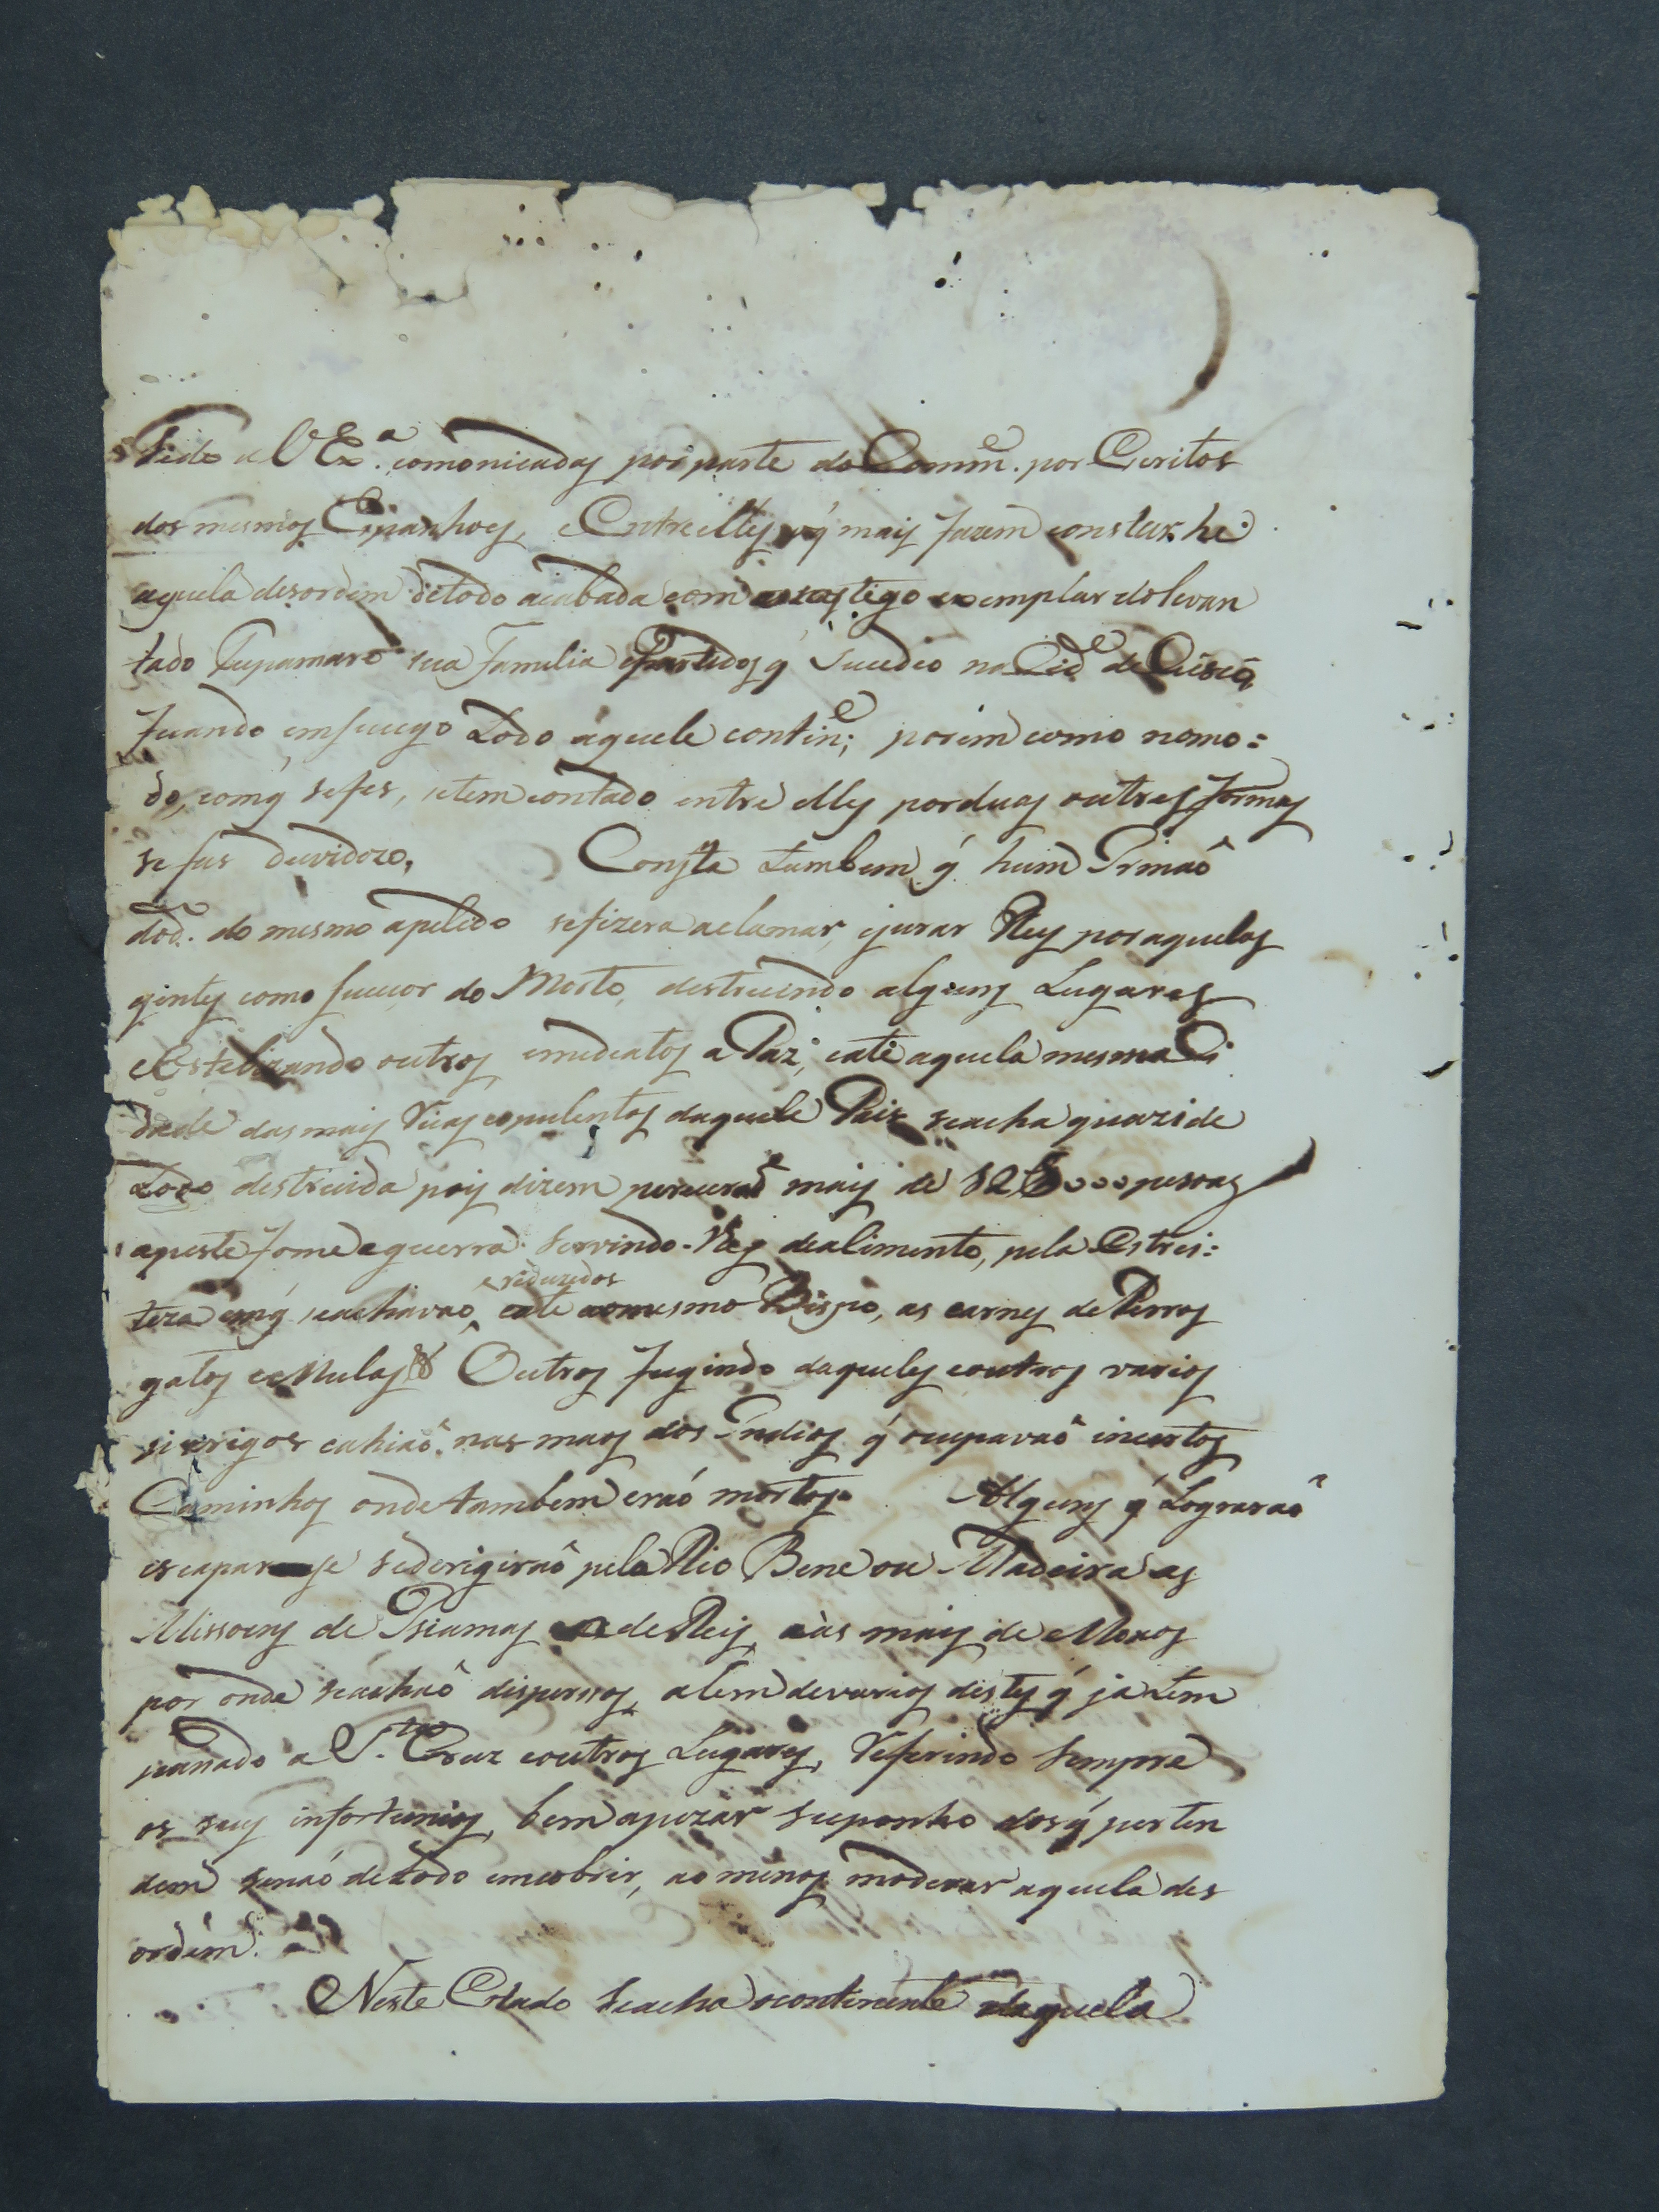 Sido a V Ex.ª comonicadas por parte do Comm.e por Escritos
dos mesmos Espanhoes, e Entre elles o q́ mais fazem constar he
aquela desordem de todo acabada com o castigo exemplar do levan
tado Tupamaro sua Familia e Partidos q́ Sucedeo na Cid.e de Cusco,
ficando em sucego Todo aquele contin.e; porém como nomo=
do, comq́ sefes, setem contado entre elles por duas outres formas
se fas duvidozo, Consta tambem q́ hum Irmaô
do d.o do mesmo apelido sefizera aclamar, ejurar Rey poraquelas
gentes como sucesor do Morto, destruindo alguns Lugares
e Estelizando outros, emediatos a Paz; eaté aquela mesma Ci
dade das mais Ricas eopulentas daquele Pais seacha quazi de
Todo destruida pois dizem pereceraõ mais de 12000 pesoas
apeste fome eguerra servindo-lhes dealimento, pela Estrei=
teza emq́ seachavaõ, ereduzidos eate aomesmo Bispo, as carnes de Perros
gatos e Mulas & Outros fugindo daqueles eoutros varios
pirigos cahiaô nas maos dos Indios q́ ocupavaô incertos
Caminhos onde tambem eraó mortos. Alguns q́ Lograraô
escapar-se sederigiraô pelo Rio Bene ou Madeira as
Missoens de Isiamas e de Reis, eàs mais de Moxos
por onde seachaô dispersos, além devarios destes q́ ja tem
pasado a S.ta Cruz eoutros Lugares, Referindo sempre
os seus infortunios, bem apezar suponho dosq́ perten
dem senaó detodo emcobrir, ao menos moderar aquela des
ordém.
Neste Estado seacha ocontinente daquela